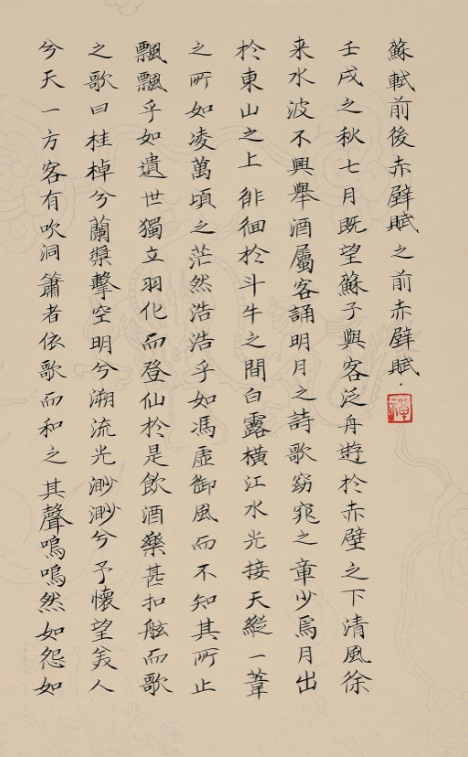 蘇軾前後赤壁賦之前赤壁賦·
壬戌之秋七月既望蘇子與客泛舟遊於赤壁之下清風徐
来水波不興舉酒屬客誦明月之詩歌窈窕之章少焉月出
於東山之上徘徊於斗牛之間白露橫江水光接天縱一葦
之所如凌萬頃之茫然浩浩乎如馮虛御風而不知其所止
飄飄乎如遺世獨立羽化而登仙於是飲酒樂甚扣舷而歌
之歌曰桂棹兮蘭槳擊空明兮溯流光渺渺兮予懷望美人
兮天一方客有吹洞簫者依歌而和之其聲嗚嗚然如怨如